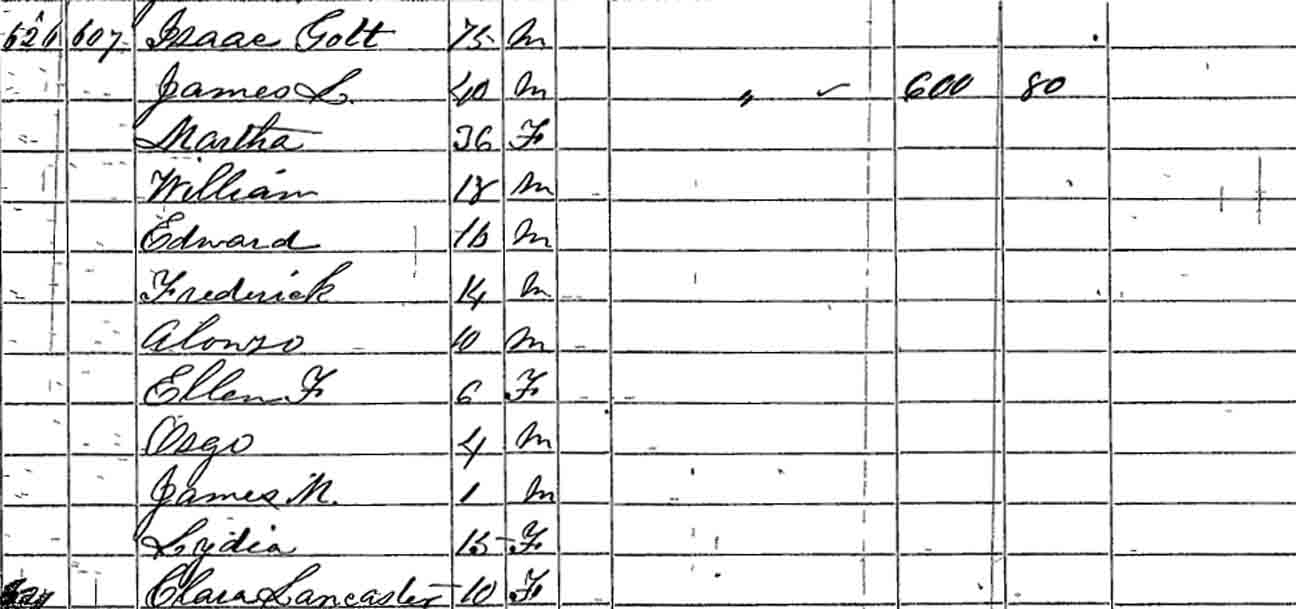 626 607 Isaac Gott 75 M
James L. 40 M " ✓ 600 80
Martha 36 F
William 18 M
Edward 16 M
Frederick 14 M
Alonzo 10 M
Ellen F 6 F
Osgo 4 M
James M. 1 M
Lydia 15 F
Clara Lancaster 10 F